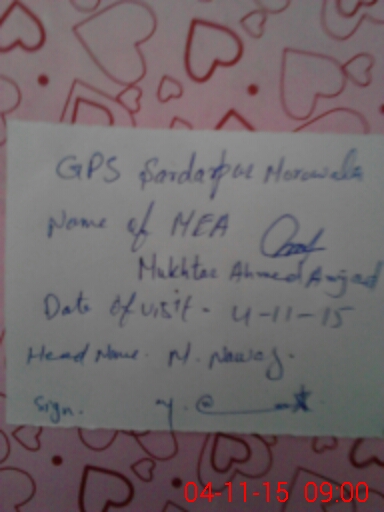 GPS Sardarpur Morawala
Name of MEA
Mukhtar Ahmed Amjad
Date of visit - 4-11-15
Head Name. M. Nawaz.
Sign.
04-11-15 09:00